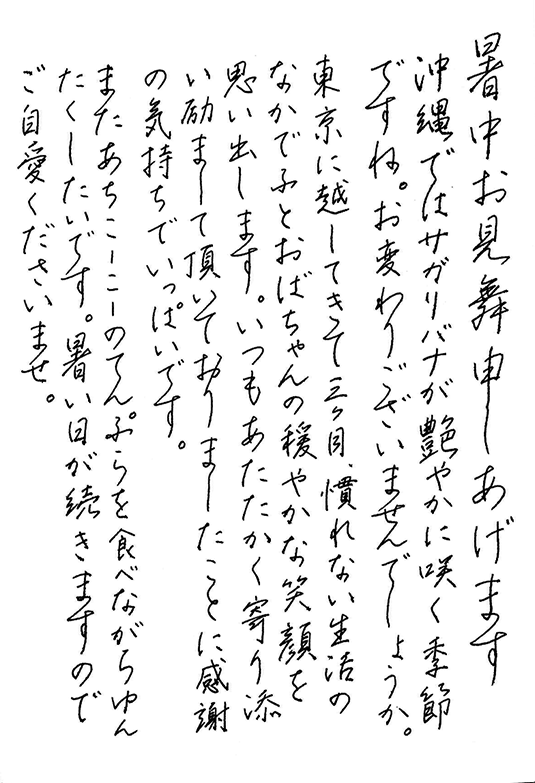 暑中お見舞申しあげます
沖縄ではサガリバナが艶やかに咲く季節
ですね。お変わりございませんでしょうか。
東京に越してきて三ヶ月、慣れない生活の
なかでふとおばちゃんの穏やかな笑顔を
思い出します。いつもあたたかく寄り添
い励まして頂いておりましたことに感謝
の気持ちでいっぱいです。
またあちこーこーのてんぷらを食べながらゆん
たくしたいです。暑い日が続きますので
ご自愛くださいませ。